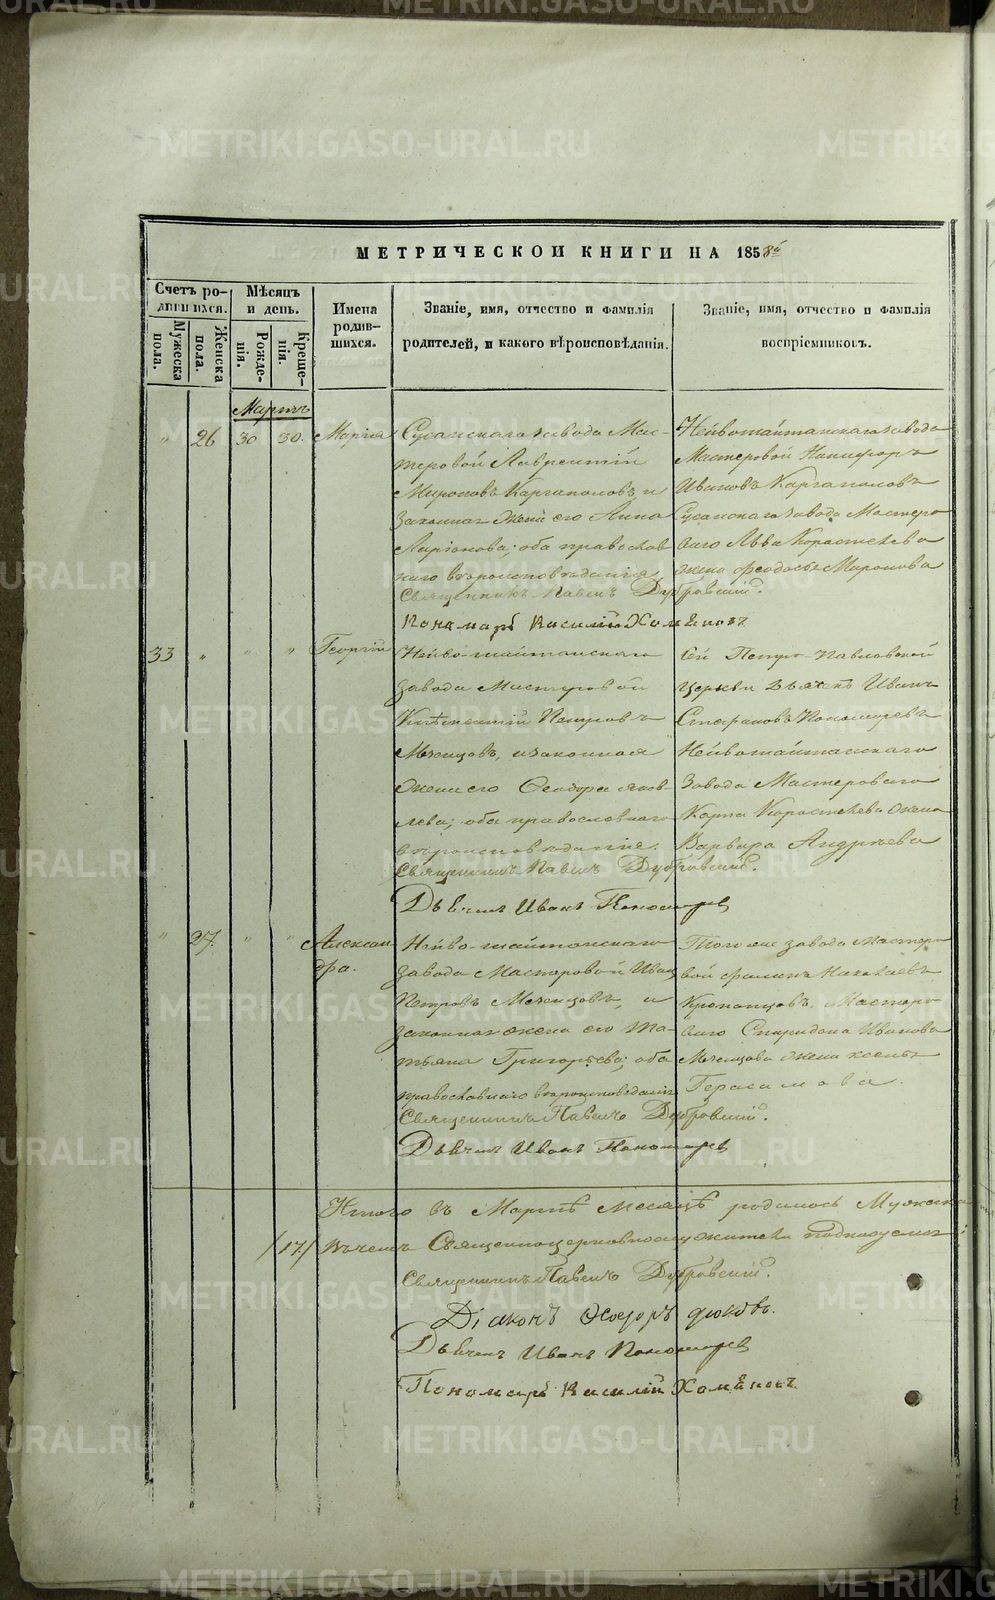 METRIKI.GASO-URAL.RU
МЕТРИЧЕСКОЙ КНИГИ НА 1858й
Счетъ ро-
дившихся.
Мужеска
пола.
Женска
пола.
Мѣсяцъ
и день.
Рожде-
нія.
Креще-
нія.
Имена
родив-
шихся.
Званіе, имя, отчество и фамилія
родителей, и какого вѣроисповѣданія.
Званіе, имя, отчество и фамилія
воспріемниковъ.
Мартъ
" 26 30 30. Марія
Сусанскаго завода Мас-
теровой Лаврентій
Мироновъ Каргаполовъ, и
законная жена его Анна
Ларіонова; оба православ
наго вѣроисповѣданія
Священникъ Павелъ Дубровскій.
Пономарь Василій Хомяковъ
Нейвошайтанскаго завода
Мастеровой Никифоръ
Ивановъ Каргаполовъ
Сусанскаго завода Мастеро
ваго Льва Коростелева
жена Феодосья Миронова
33 " " " Георгій
Нейво-шайтанскаго
завода Мастеровой
Петровъ
Мезенцовъ, и законная
жена его Яков-
лева; оба православнаго
вѣроисповѣданія.
Священникъ Павелъ Дубровскій.
Дьячекъ Иванъ Пономарев
Сей Петро-Павловской
Церкви Дьячекъ Иванъ
Стефановъ Пономаревъ
Нейвошайтанскаго
Завода Мастероваго
Карпа Коростелева жена
Варвара Андреева
" 27. " " Алексан
дра.
Нейво-шайтанскаго
завода Мастеровой Иванъ
Петровъ Мезенцовъ, и
законная жена его Та-
тьяна Григорьева; оба
православнаго вѣроисповѣданія
Священникъ Павелъ Дубровскій.
Дьячекъ Иванъ Пономарев
Того же завода Мастеро
вой Филипъ
Мастеро
ваго Спиридона Иванова
Мезенцова жена Ксенья
Герасимова.
Итого въ Мартѣ Месяцѣ родилось Мужска
/17/ Въ чемъ Священноцерковнослужители подписуемся:
Священникъ Павелъ Дубровскій.
Діаконъ Ѳеодоръ
Дьячекъ Иванъ Пономарев
Пономарь Василій Хомяковъ